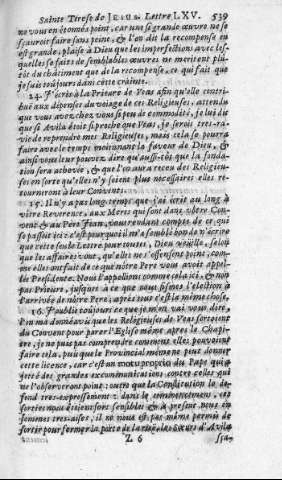 Sainte Terese de JESUS. Lettre LXV. 539
ne vous en étonnés point, car une si grande œuvre ne se
sçauroit faire sans peine, & l'on dit la recompense en
est grande, plaise à Dieu que les imperfections avec les-
quelles se faites de semblables œuvres ne meritent plu-
tôt du châtiment que de la recompense, ce qui fait que
je suis toûjours dans cette crainte.
24. J'écris à la Prieure de Veas afin qu'elle contri-
buë aux dépenses du voiage de ces Religieuses, attendu
que vous avez chez vous si peu de commodité, je lui dis
que si Avila étoit si proche que Veas, je serois tres-ra-
vie de reprendre mes Religieuses, mais cela se pourra
faire avec le temps moienant la faveur de Dieu, &
ainsi vous leur pouvez dire qu'aussi-tôt que la fonda-
tion sera achevée, & que l'on aura receu des Religieuses
en sorte qu'elles n'y soient plus necessaires elles re-
tourneront à leur Convent.
25. Il n'y a pas long temps que j'ai écrit au long à
vôtre Reverence, aux Meres qui sont dans vôtre Con-
vent & au Père Jean, vous rendant compte de ce qui
se passoit ici: c'est pourquoi il m'a semblé bon de n'écrire
que cette seule Lettre pour toutes, Dieu veüille, selon
que les affaires vont, qu'elles ne s'offensent point, com-
me elles ont fait de ce que nôtre Pere vous avoit appel-
lée Presidente. Nous l'appellions comme cela ici, & non
pas Prieure, jusques à ce que nous fismes l'election à
l'arrivée de nôtre Pere, aprés tout c'est la même chose,
26. J'oubliois toûjours ce que j'ai mis, vai vous dire
l'on m'a donné avis que les Religieuses de Veas sortoient
du Convent pour parer l'Eglise même aprés le Chapi-
tre, je ne puis pas comprendre comment elles pouvoient
faire cela, puis que le Provincial même ne peut donner
cette licence, car c'est un motu proprio du Pape qui a
jetté des grandes excommunications contre celles qui
ne l'observeront point: outre que la Constitution le de-
fend tres-expressement: dans le commencement, ces
sorties nous étoient fort sensibles & à present nous en
sommes tres-aises; il ne nous est pas même permis de
sortir pour fermer la porte de la ruë, les Sœurs d'Avila
Z 6